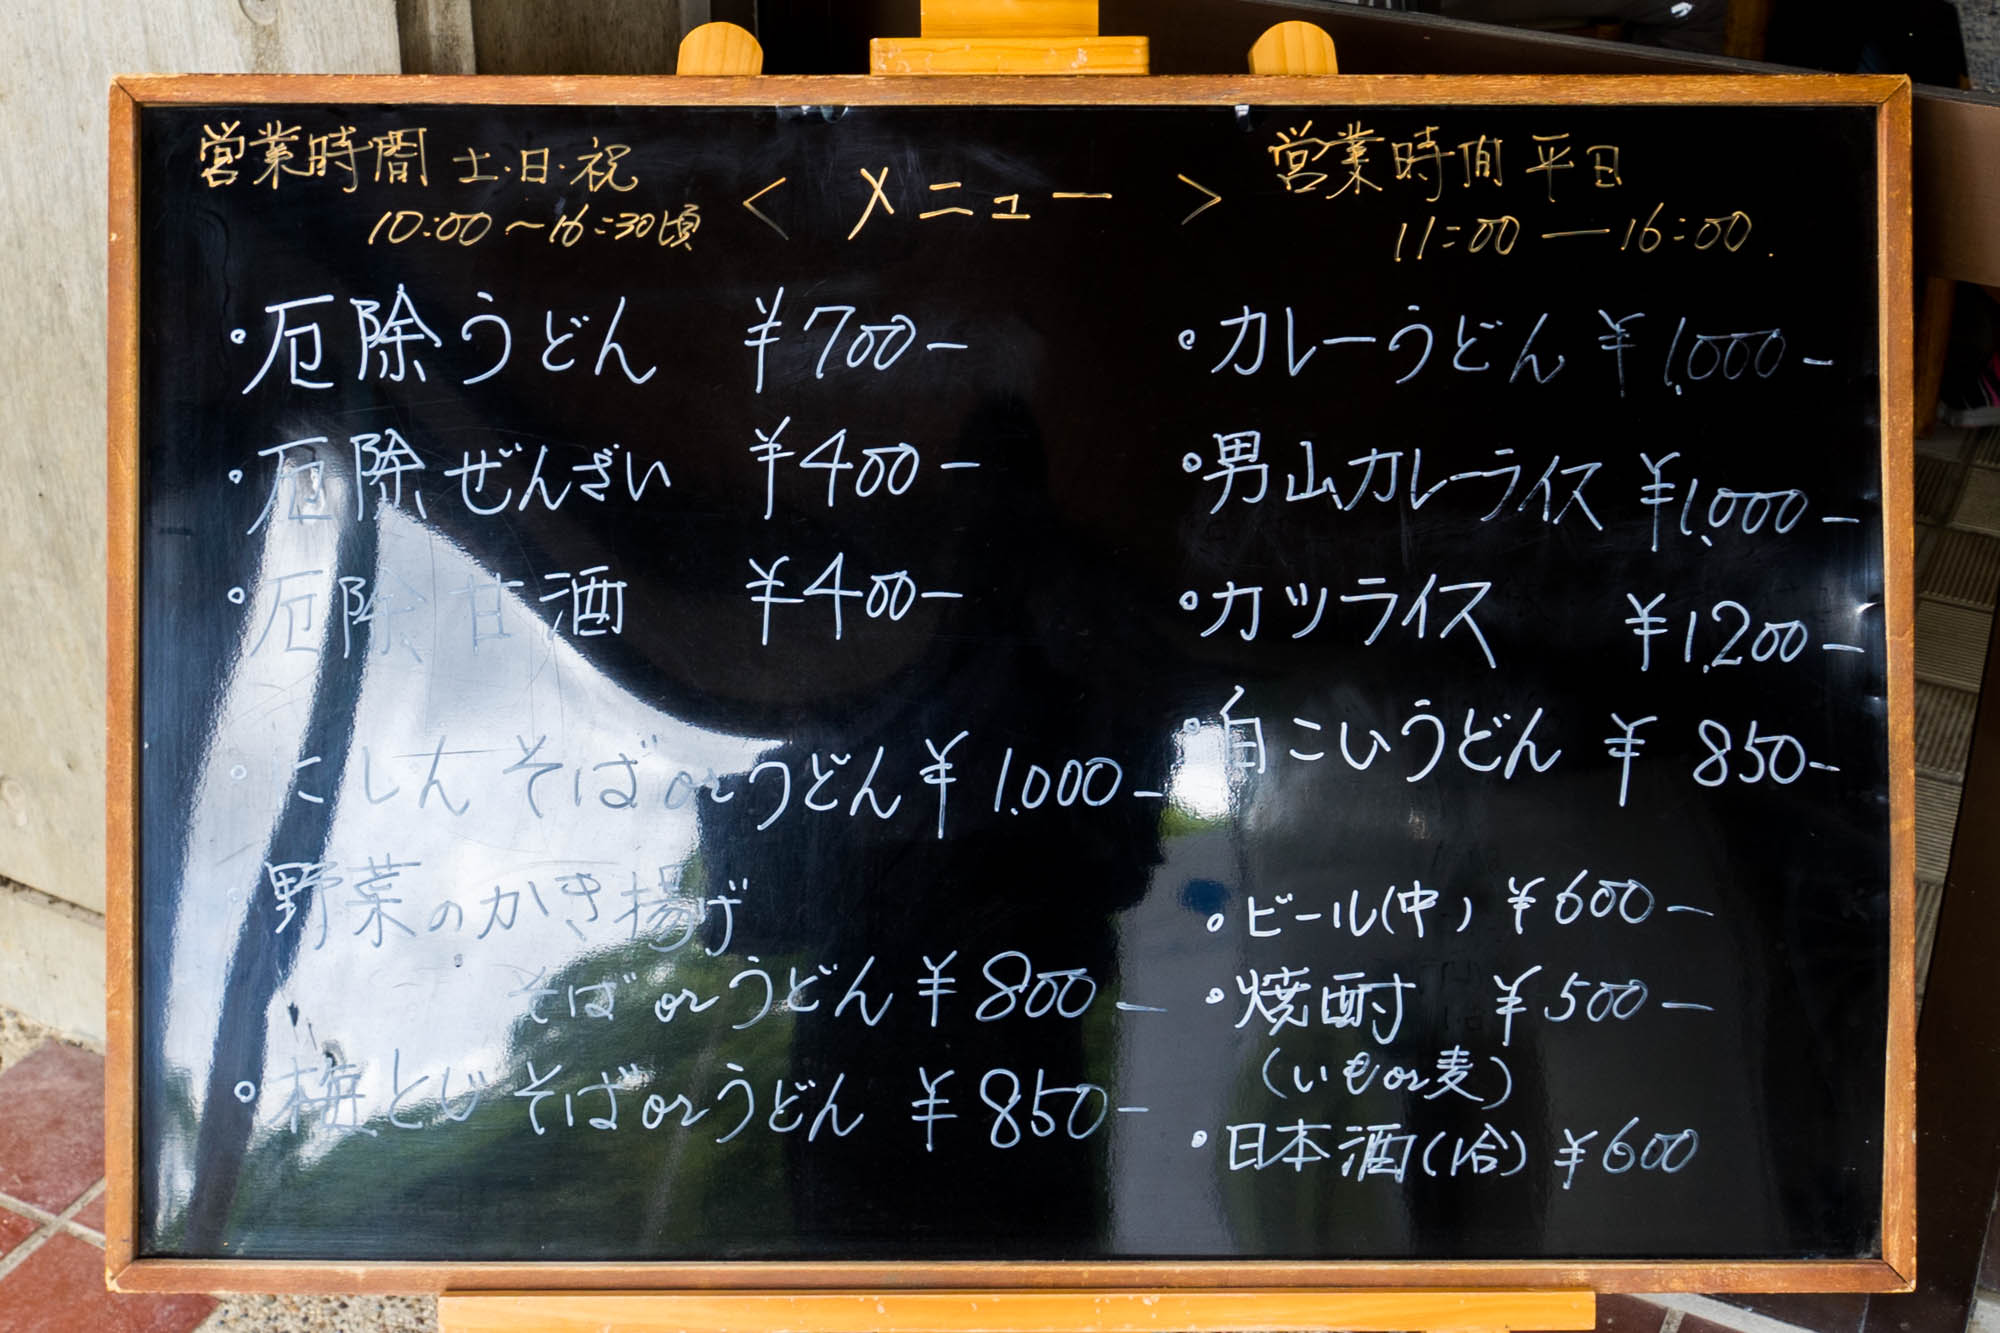 営業時間 土・日・祝
10:00～16:30頃
＜ メニュー ＞
営業時間 平日
11:00ー16:00.
・厄除うどん ¥700-
・厄除ぜんざい ¥400-
・厄除甘酒 ¥400-
・にしんそばorうどん ¥1.000-
・野菜のかき揚げ
そばorうどん ¥800-
・梅とじそばorうどん ¥850-
・カレーうどん ¥1.000-
・男山カレーライス ¥1.000-
・カツライス ¥1.200-
・白こいうどん ¥850-
・ビール(中) ¥600-
・焼酎 ¥500-
(いもor麦)
・日本酒(1合) ¥600